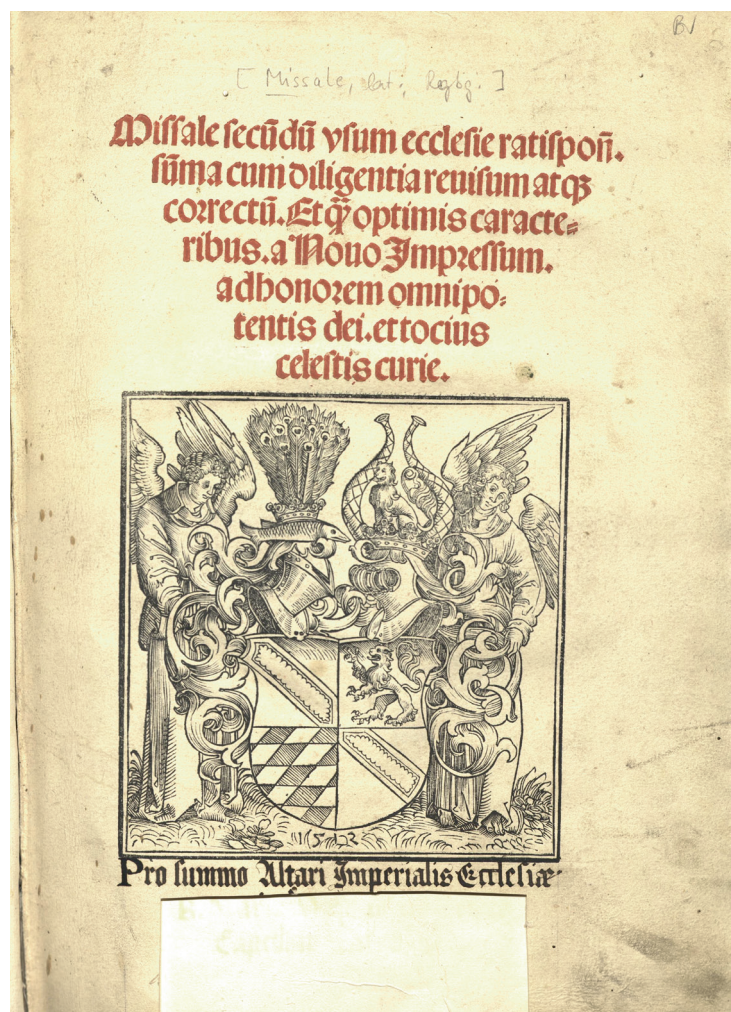 BV
[Missale, lat.;
Missale secūdū vsum ecclesie ratispoñ.
sūma cum diligentia reuisum atqꝫ
correctū. Et q̄ꝫ optimis caracte⸗
ribus. a Nouo Impressum.
ad honorem omnipo⸗
tentis dei. et tocius
celestis curie.
1512
Pro summo Altari Imperialis Ecclesiæ